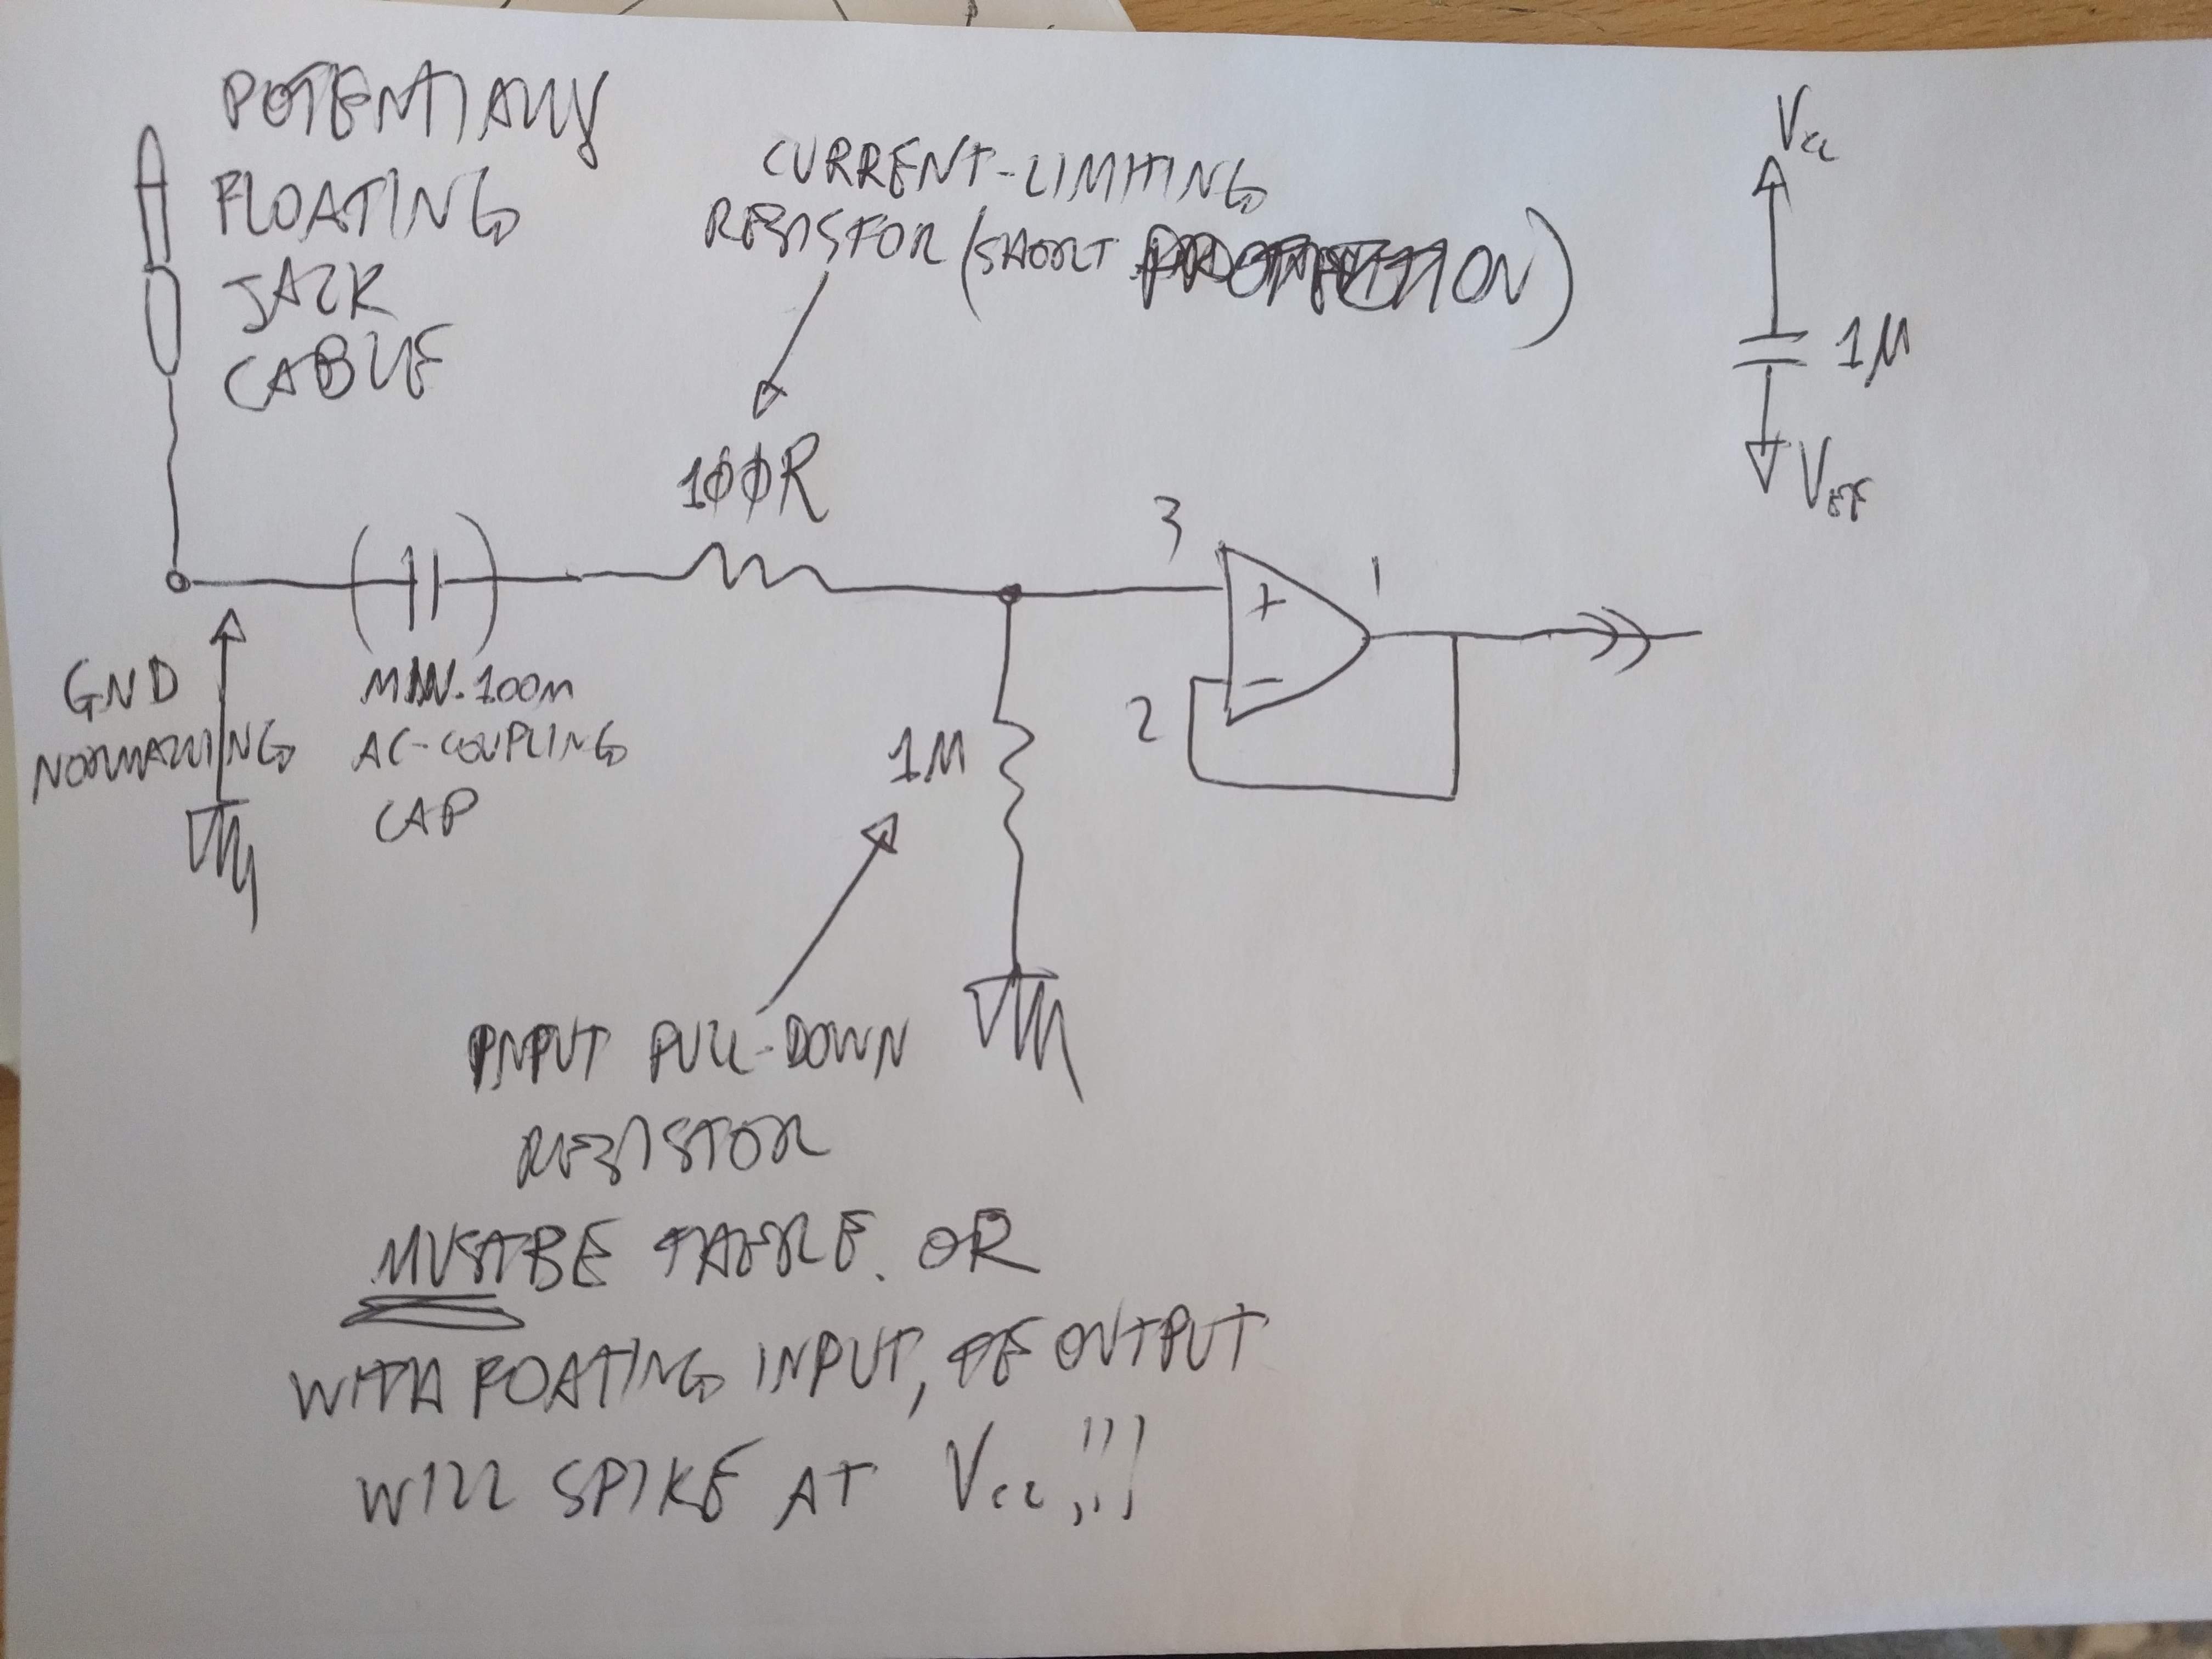 POTENTIALLY
FLOATING
JACK
CABLE
CURRENT-LIMITING
RESISTOR (SHORT PROTECTION)
100R
Vcc
1µ
VEE
3
+
1
2
-
GND
NORMALLING
MIN. 100n
AC-COUPLING
CAP
1M
INPUT PULL-DOWN
RESISTOR
MUST BE THERE. OR
WITH FOATING INPUT, THE OUTPUT
WILL SPIKE AT Vcc!!!